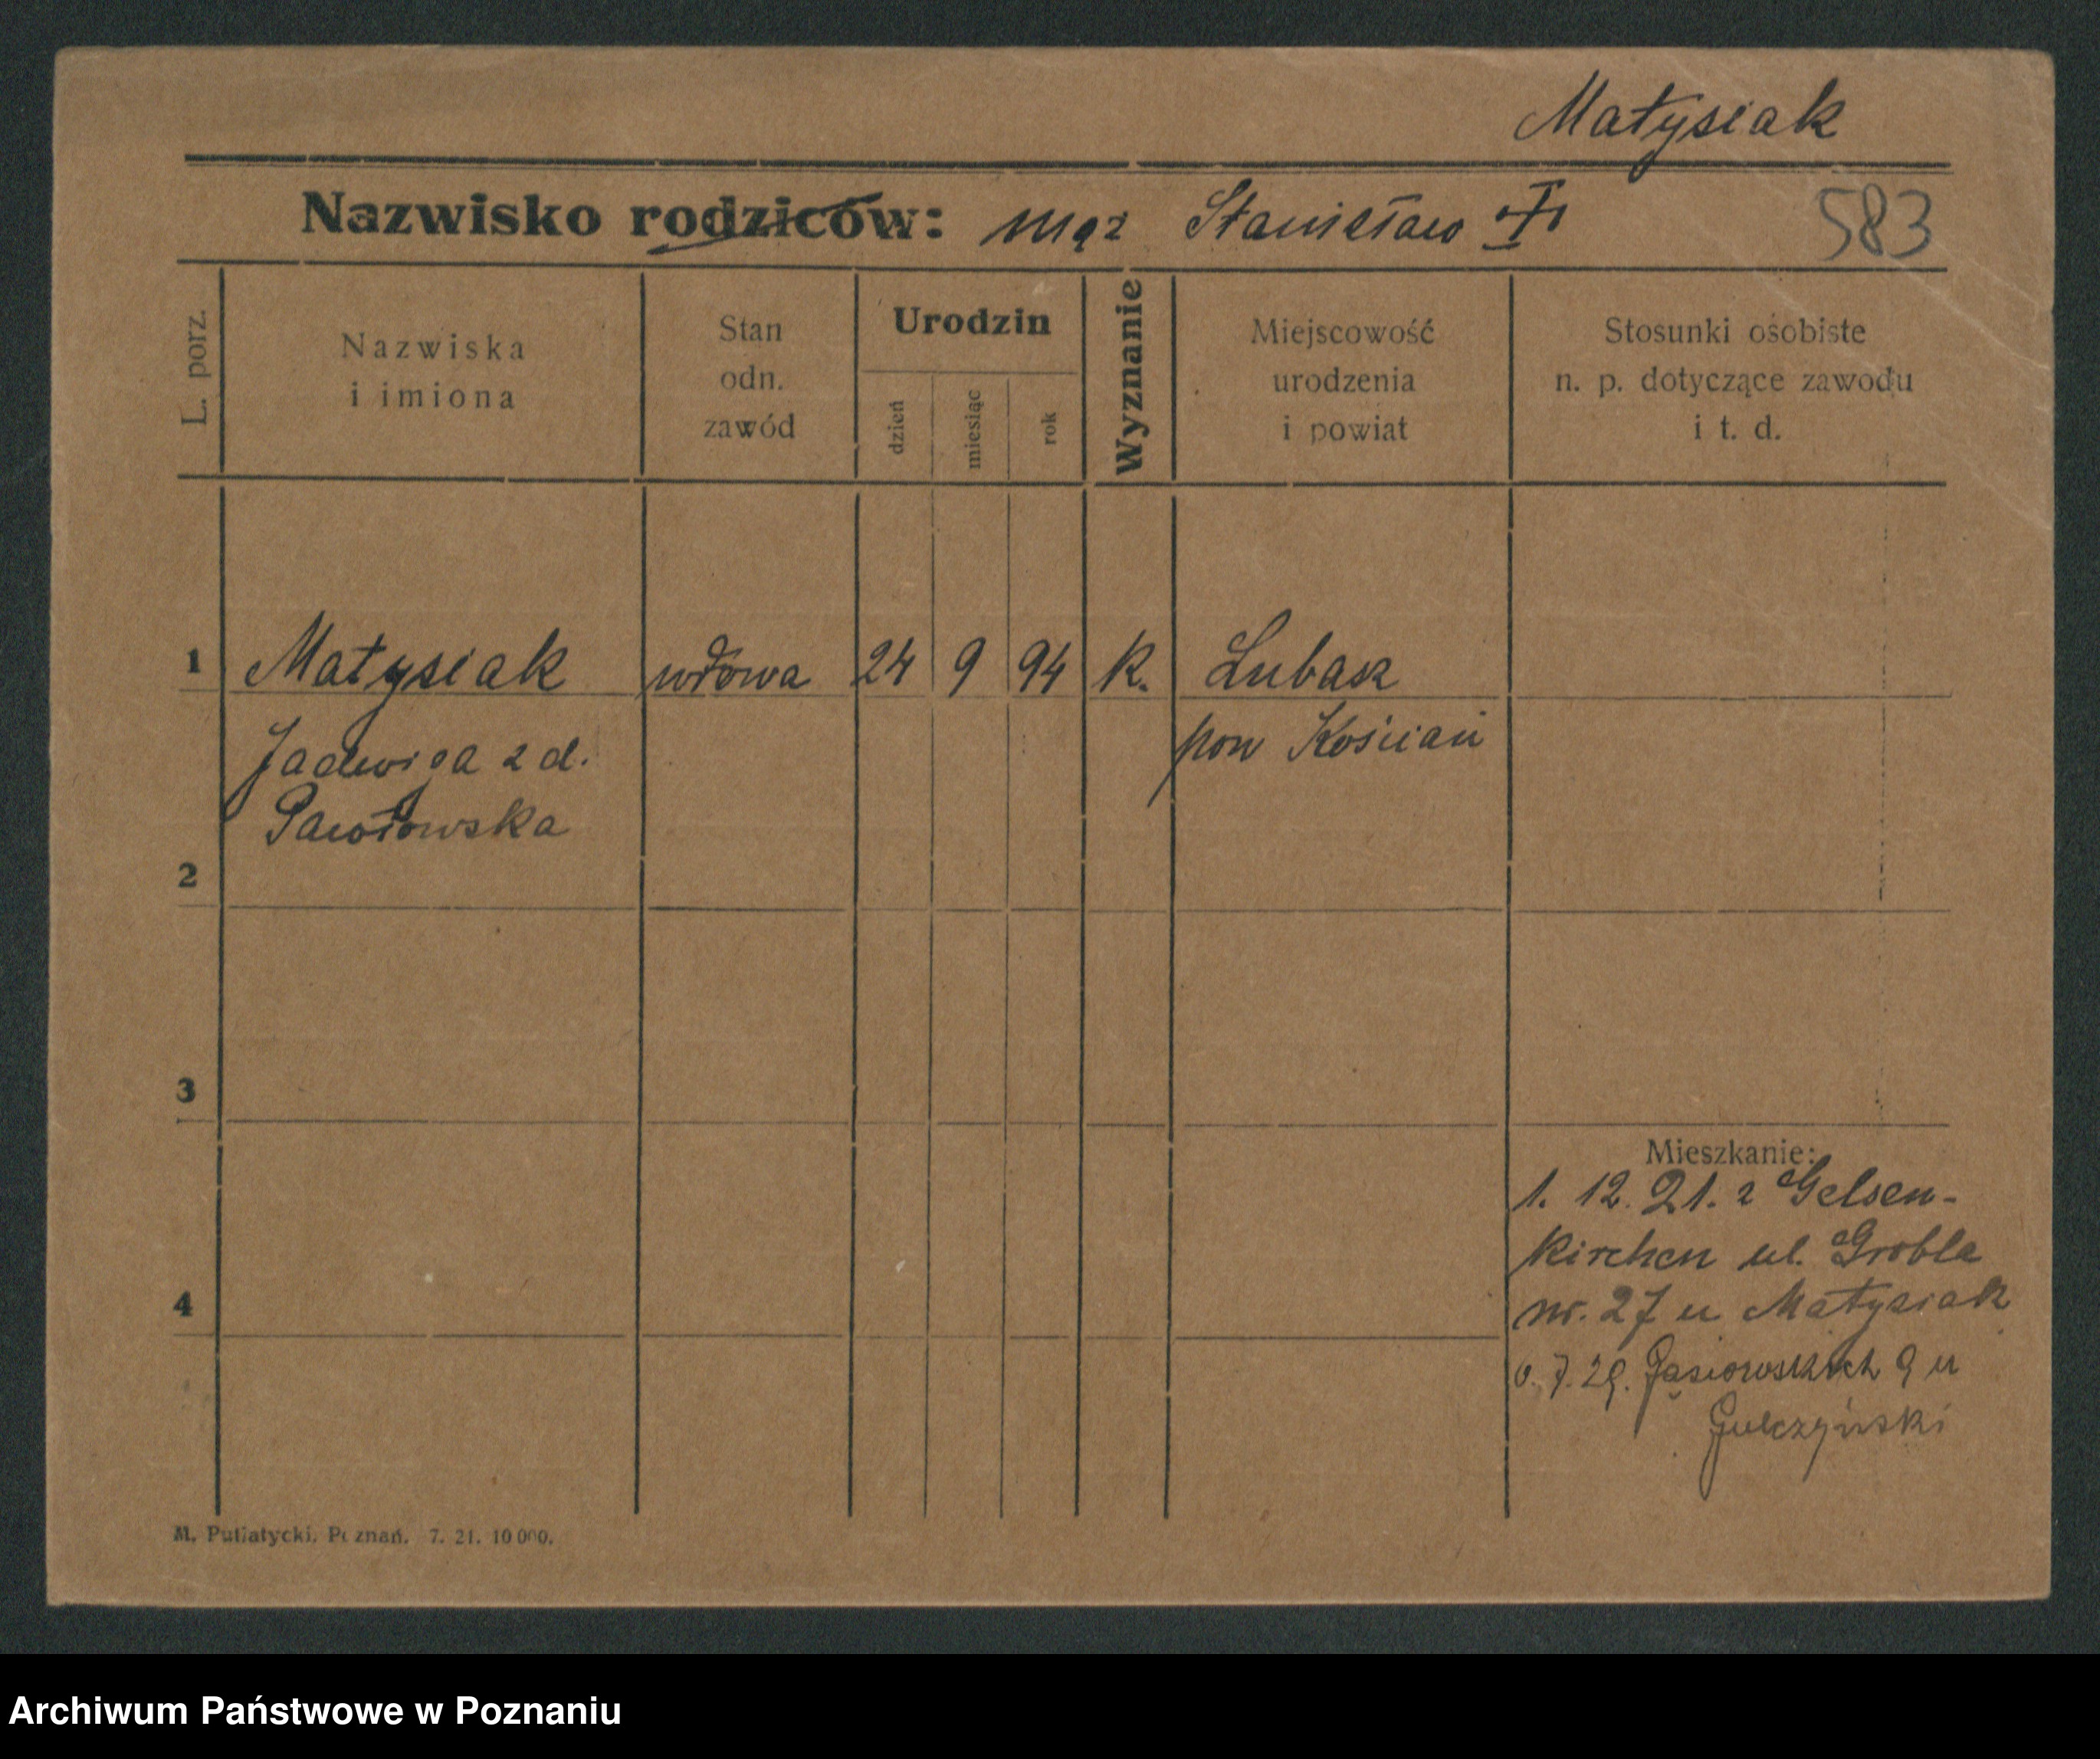 Matysiak
Nazwisko rodziców: mąż Stanisław
583
L. porz.
Nazwiska
i imiona
Stan
odn.
zawód
Urodzin
dzień
miesiąc
rok
Wyznanie
Miejscowość
urodzenia
i powiat
Stosunki osobiste
n. p. dotyczące zawodu
i t. d.
1 Matysiak wdowa 24 9 94 k. Lubasz
Jadwiga z d. pow Kościan
Pawłowska
2
3
4
Mieszkanie:
1. 12. 21. z Gelsen-
kirchen ul. Grobla
nr. 27 u Matysiak
7. 29. Gąsiorowskich 9 u
Gulczyński
M. Putiatycki. Poznań. 7. 21. 10 000.
Archiwum Państwowe w Poznaniu